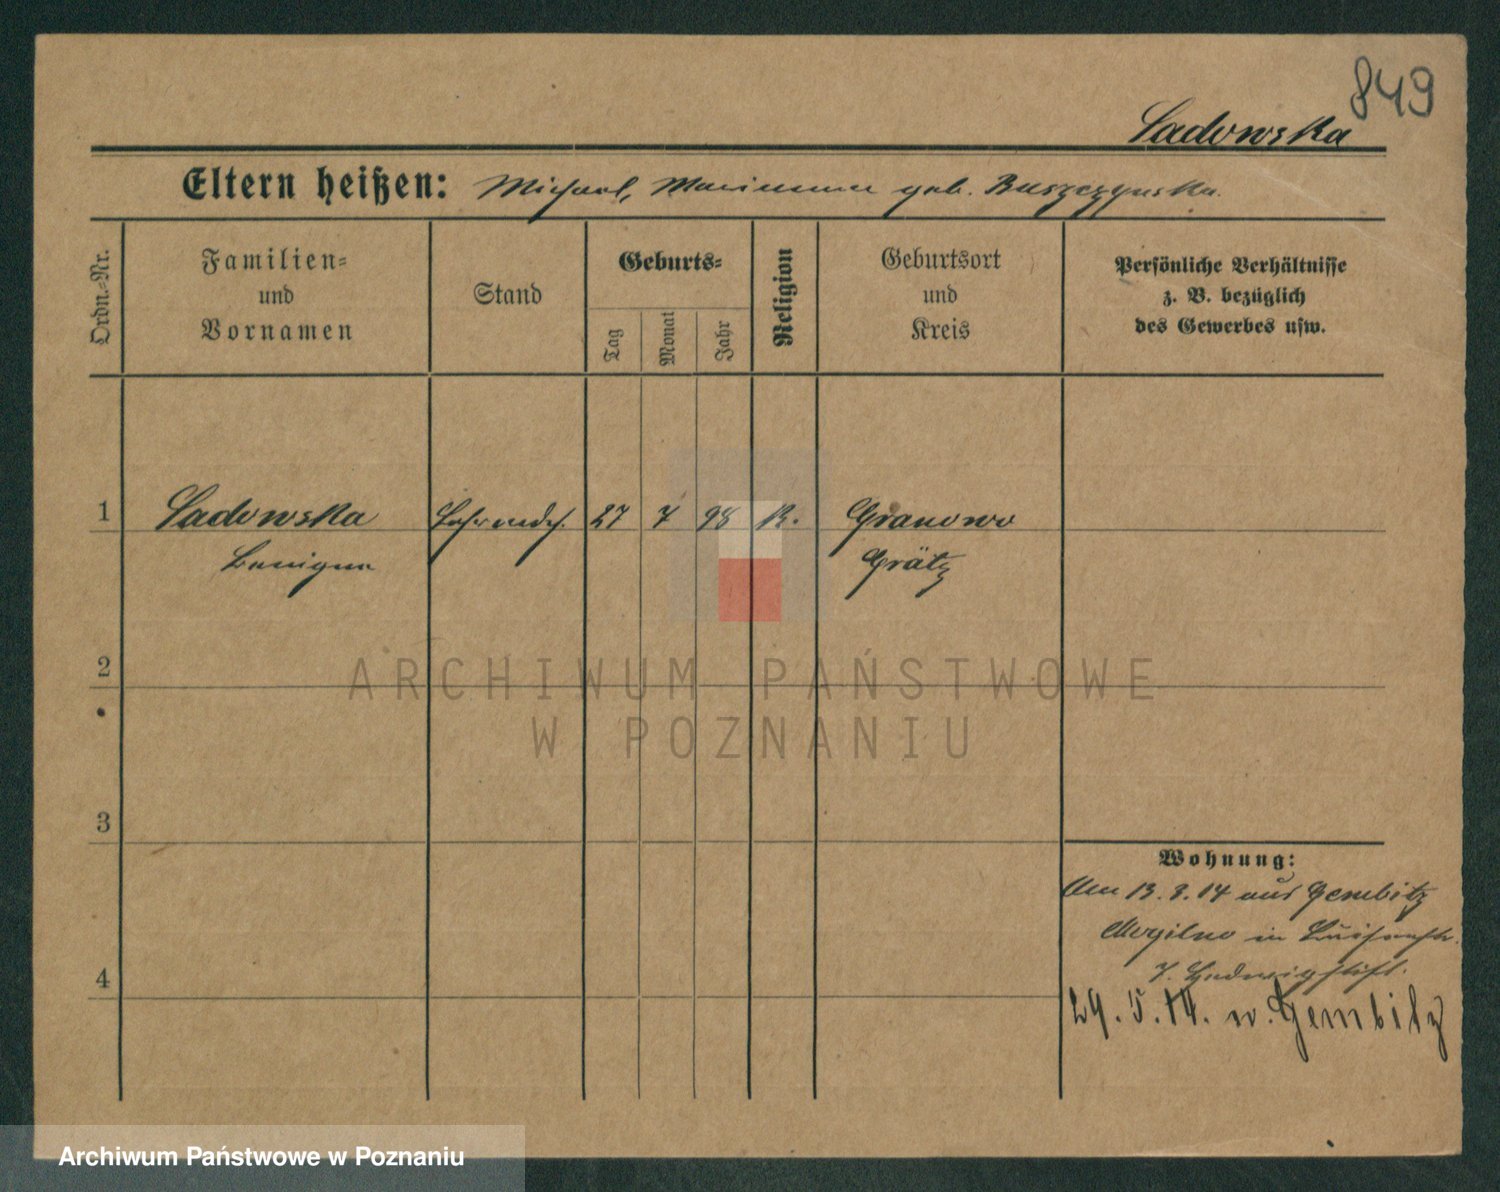 849
Sadowska
Eltern heißen: Michael, Marianna geb. Buszczynska.
Ordn.-Nr.
Familien-
und
Vornamen
Stand
Geburts-
Tag
Monat
Jahr
Religion
Geburtsort
und
Kreis
Persönliche Verhältnisse
z. B. bezüglich
des Gewerbes usw.
1 Sadowska 27 7 98 K. Granowo
Benigna Grätz
2
3
4
Wohnung:
Am 13. 3. 14 aus Gembitz
Mogilno in Luisenstr.
7. Hedwigstift.
29. 5. 14. n. Gembitz
ARCHIWUM PAŃSTWOWE
W POZNANIU
Archiwum Państwowe w Poznaniu